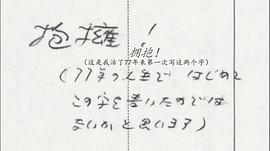 抱擁!
拥抱!
(这是我活了77年来第一次写这两个字)
(77年の人生で はじめて
この字を書いたのでは
ないかと思います)